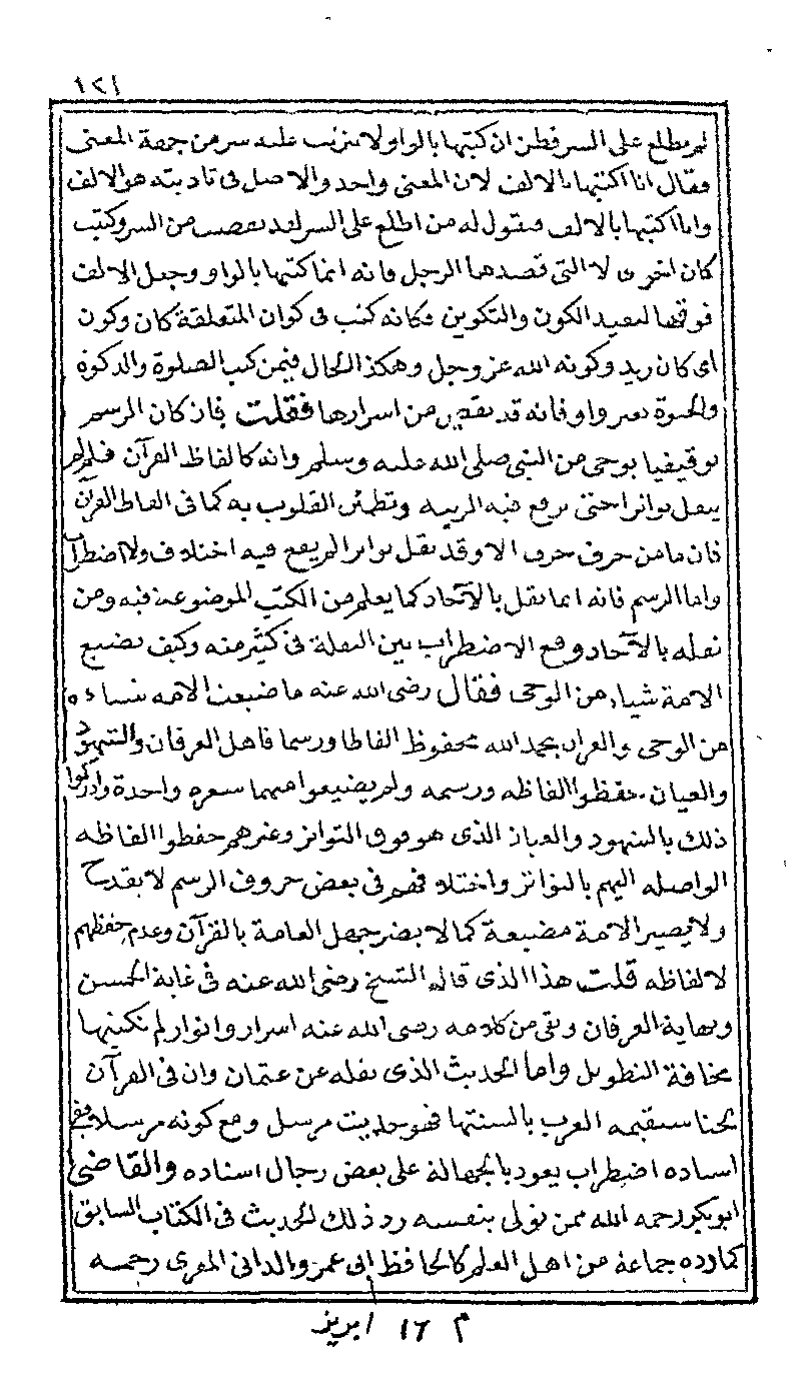 ١٢١
لم يطلع على السر فظن ان كتبها بالواو لا يترتب عليه سر من جهة المعنى
فقال انا اكتبها بالالف لان المعنى واحد والاصل فى تاديته هو الالف
وانا اكتبها بالالف فيقول له من اطلع على السر لقد نقصت من السر وكتبت
كان اخرى لا التى قصدها الرجل فانه انما كتبها بالواو وجعل الالف
فوقها ليفيد الكون والتكوين فكانه كتب فى كوان المتعلقة كان وكون
اى كان زيد وكونه الله عز وجل وهكذا الحال فيمن كتب الصلوة والزكوة
والحيوة بغير واو فانه قد نقص من اسرارها فقلت فان كان الرسم
توقيفيا بوحى من النبى صلى الله عليه وسلم وانه كالفاظ القرآن فلم لم
ينقل تواترا حتى ترفع فيه الريبه وتطمئن القلوب به كما فى الفاظ القرآن
فان ما من حرف حرف الا وقد نقل تواترا لم يقع فيه اختلاف ولا اضطراب
واما الرسم فانه انما نقل بالآحاد كما يعلم من الكتب الموضوعة فيه ومن
نقله بالآحاد وقع الاضطراب بين النقلة فى كثير منه وكيف تضيع
الامة شياء من الوحى فقال رضى الله عنه ما ضيعت الامه شياء
من الوحى والقران بحمد الله محفوظ الفاظا ورسما فاهل العرفان والشهود
والعيان حفظوا الفاظه ورسمه ولم يضيعوا منهما شعرة واحدة وادركوا
ذلك بالشهود والعيان الذى هو فوق التواتر وغيرهم حفظوا الفاظه
الواصله اليهم بالتواتر واختلافهم فى بعض حروف الرسم لا يقدح
ولا يصير الامة مضيعة كما لا يضر جهل العامة بالقرآن وعدم حفظهم
لالفاظه قلت هذا الذى قاله الشيخ رضى الله عنه فى غاية الحسن
ونهاية العرفان وبقى من كلامه رضى الله عنه اسرار وانوار لم نكتبها
مخافة التطويل واما الحديث الذى نقله عن عثمان وان فى القرآن
لحنا ستقيمه العرب بالسنتها فهو حديث مرسل ومع كونه مرسلا ففى
اسناده اضطراب يعود بالجهالة على بعض رجال اسناده والقاضى
ابو بكر رحمه الله ممن تولى بنفسه رد ذلك الحديث فى الكتاب السابق
كما رده جماعة من اهل العلم كالحافظ ابى عمرو الدانى المقرى رحمه
م ١٦ ابريز